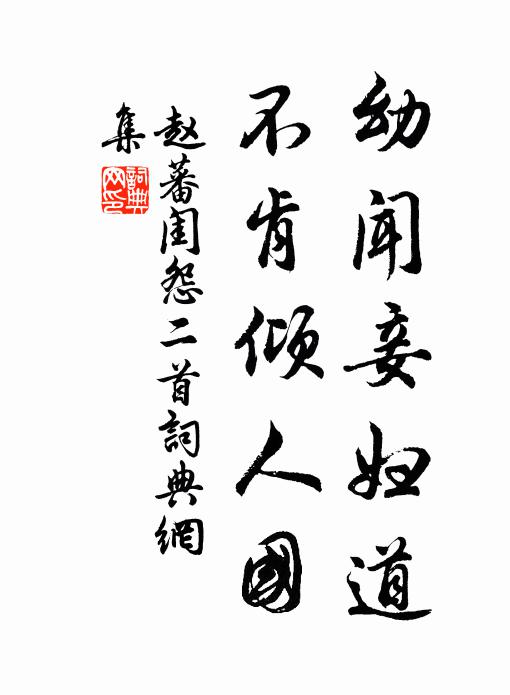 幼闻妾妇道
不肯倾人國
赵蕃闺怨二首詞典網
集
詞典网印